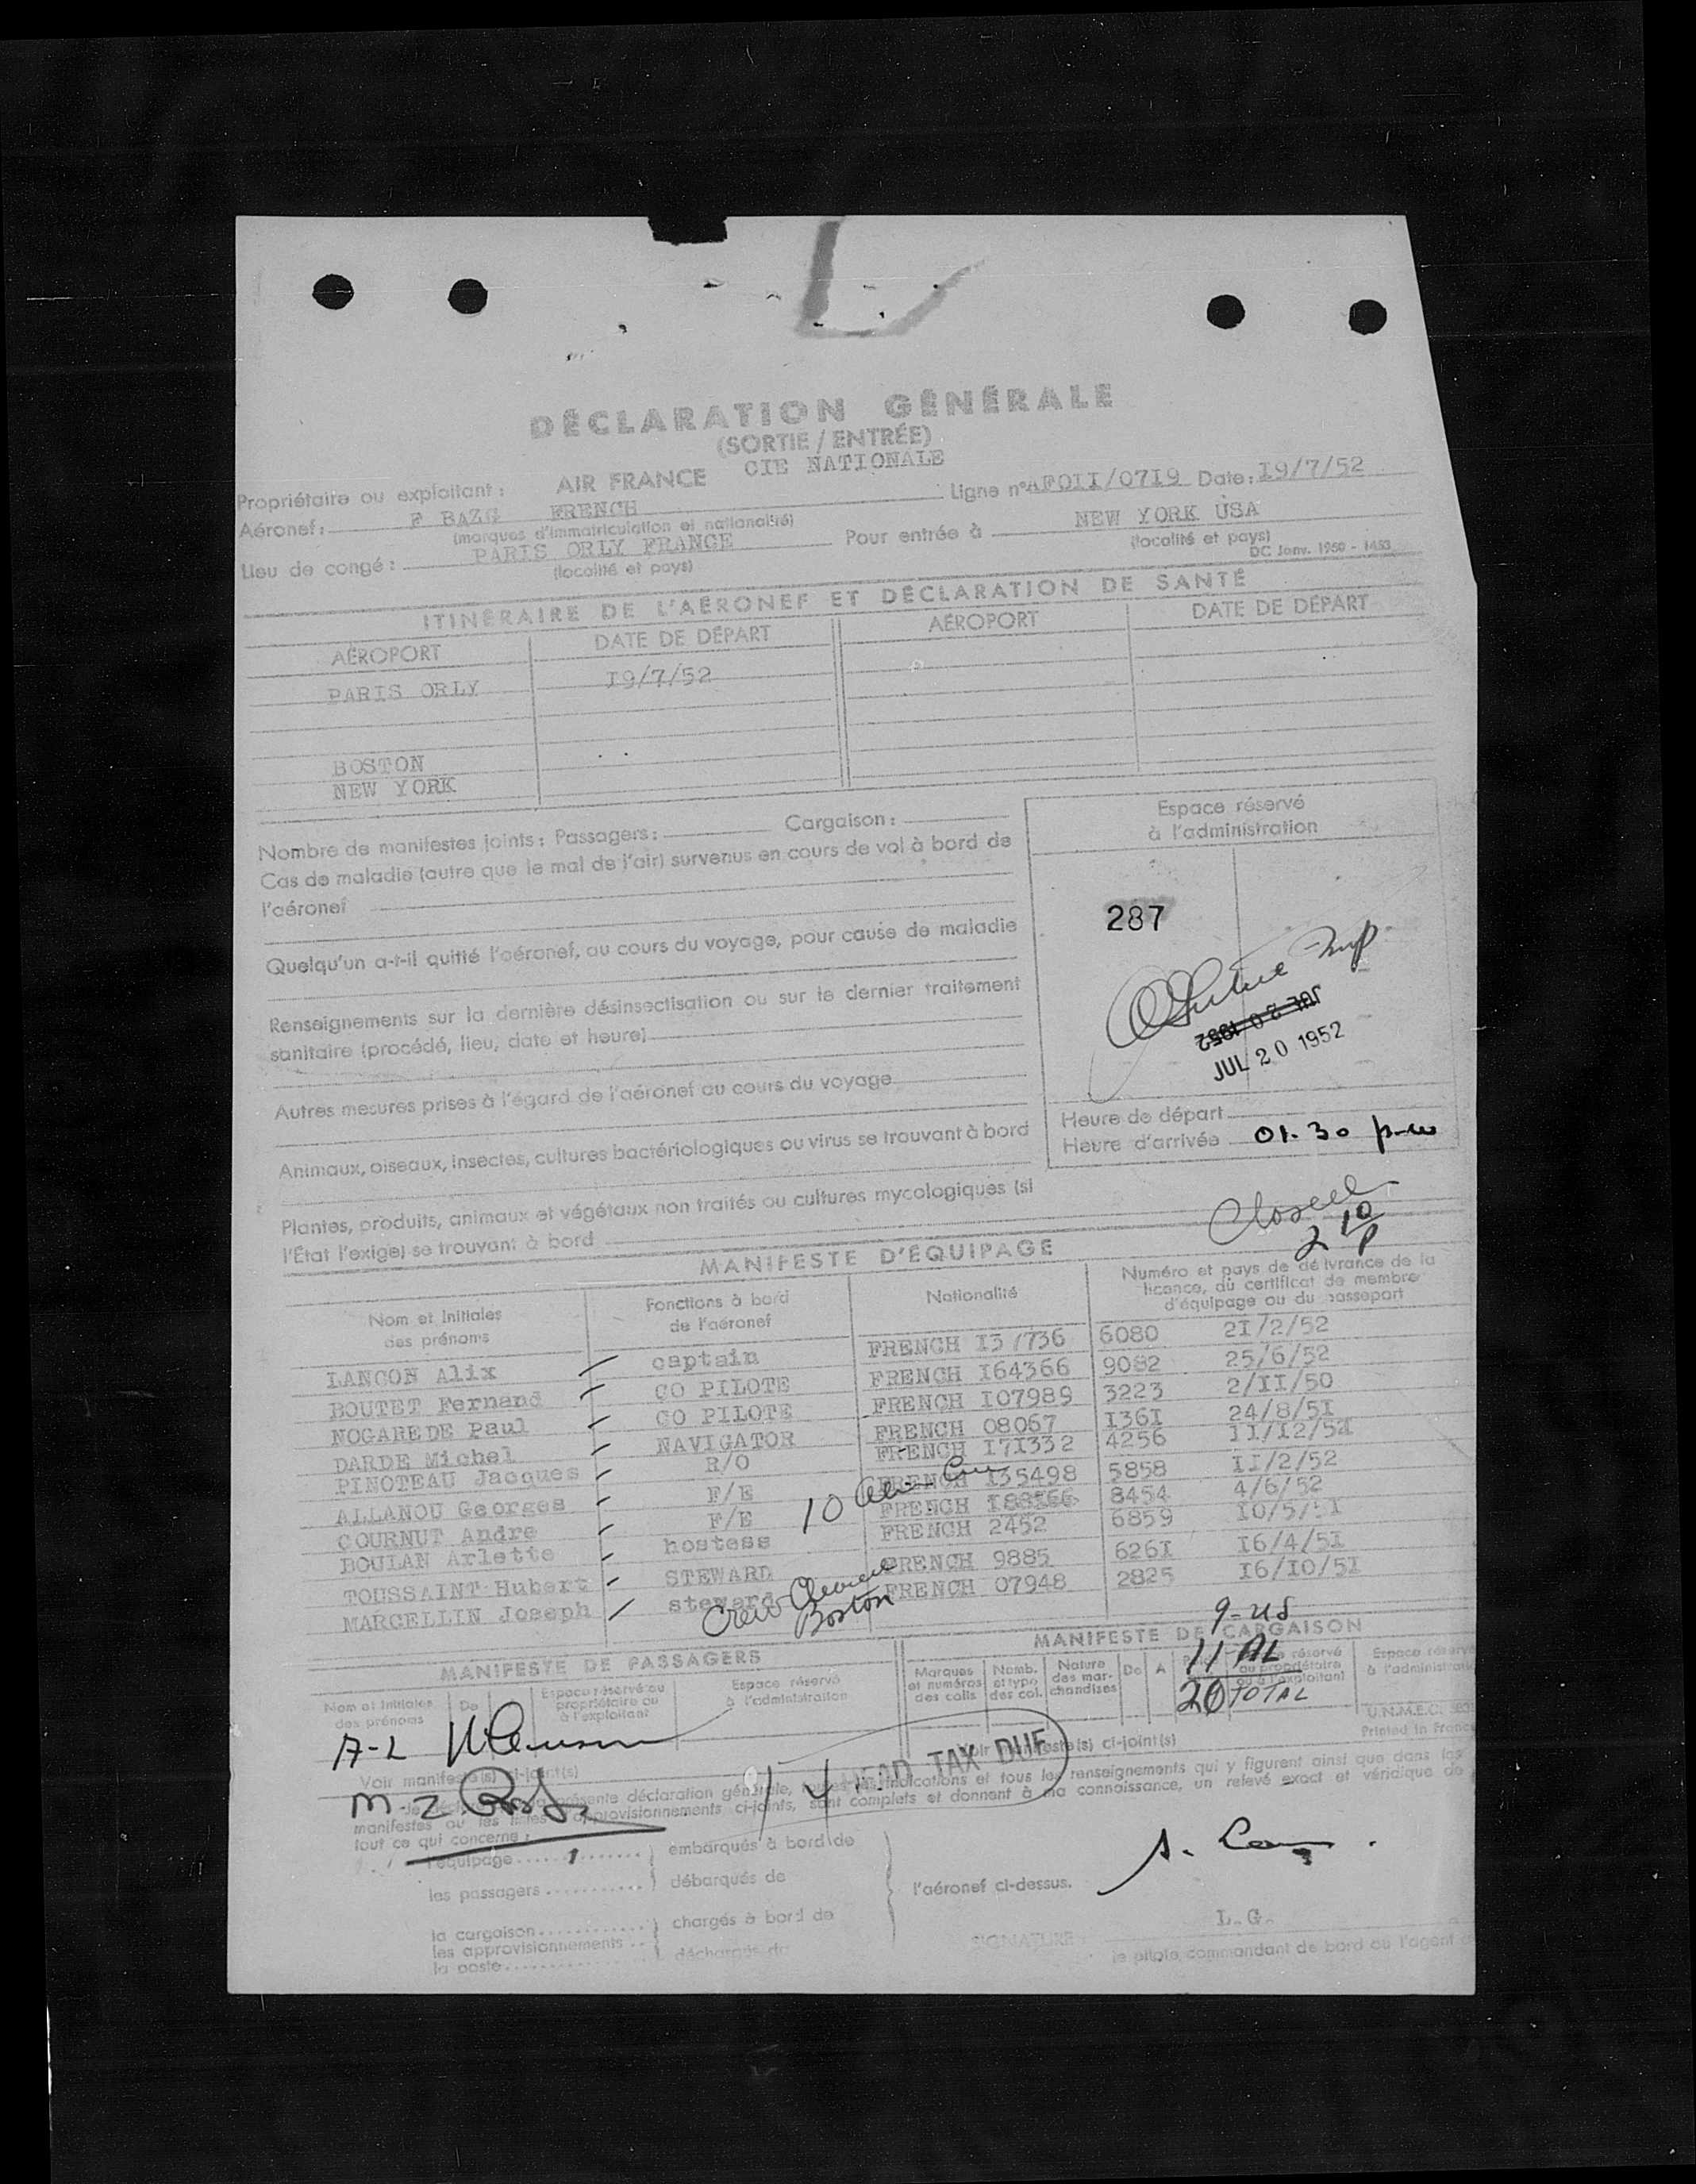 DÉCLARATION GÉNÉRALE
(SORTIE / ENTRÉE)
Propriétaire ou exploitant : AIR FRANCE CIE NATIONALE Ligne n° AFOII/07I9 Date : I9/7/52
Aéronef : F BAZG FRENCH
(marques d'immatriculation et nationalité)
Lieu de congé : PARIS ORLY FRANCE Pour entrée à NEW YORK USA
(localité et pays) (localité et pays)
DC Janv. 1950 - 1453
ITINÉRAIRE DE L'AÉRONEF ET DÉCLARATION DE SANTÉ
AÉROPORT DATE DE DÉPART AÉROPORT DATE DE DÉPART
PARIS ORLY I9/7/52
BOSTON
NEW YORK
Nombre de manifestes joints : Passagers : Cargaison :
Cas de maladie (autre que le mal de l'air) survenus en cours de vol à bord de
l'aéronef
Quelqu'un a-t-il quitté l'aéronef, au cours du voyage, pour cause de maladie
Renseignements sur la dernière désinsectisation ou sur le dernier traitement
sanitaire (procédé, lieu, date et heure)
Autres mesures prises à l'égard de l'aéronef au cours du voyage
Animaux, oiseaux, insectes, cultures bactériologiques ou virus se trouvant à bord
Plantes, produits, animaux et végétaux non traités ou cultures mycologiques (si
l'État l'exige) se trouvant à bord
Espace réservé
à l'administration
287
JUL 20 1952
JUL 20 1952
Heure de départ
Heure d'arrivée 01.30 p-m
Closed
2 10/P
MANIFESTE D'ÉQUIPAGE
Nom et initiales
des prénoms
Fonctions à bord
de l'aéronef
Nationalité
Numéro et pays de délivrance de la
licence, du certificat de membre
d'équipage ou du passeport
LANCON Alix captain FRENCH 6080 2I/2/52
BOUTET Fernand CO PILOTE FRENCH I64366 9082 25/6/52
NOGAREDE Paul CO PILOTE FRENCH I07989 3223 2/II/50
DARDE Michel NAVIGATOR FRENCH 08067 I36I 24/8/5I
PINOTEAU Jacques R/O FRENCH I7I332 4256
ALLANOU Georges F/E FRENCH I35498 5858 II/2/52
COURNUT Andre F/E FRENCH 8454 4/6/52
BOULAN Arlette hostess FRENCH 2452 6859 I0/5/5I
TOUSSAINT Hubert STEWARD FRENCH 9885 626I I6/4/5I
MARCELLIN Joseph steward FRENCH 07948 2825 I6/I0/5I
10
Crew
Boston
9-US
11 AL
20 TOTAL
MANIFESTE DE PASSAGERS
Nom et initiales
des prénoms
De
Espace réservé au
propriétaire ou
à l'exploitant
Espace réservé
à l'administration
MANIFESTE DE CARGAISON
Marques
et numéros
des colis
Nomb.
et type
des col.
Nature
des mar-
chandises
De A
réservé
au propriétaire
ou à l'exploitant
Espace réservé
à l'administration
U.N.M.E.C.
Printed in France
A-L
M-Z
4 HEAD TAX DUE
Voir manifeste(s) ci-joint(s)
Voir manifeste(s) ci-joint(s)
présente déclaration générale, toutes les indications et tous les renseignements qui y figurent ainsi que dans les
manifestes ou les listes d'approvisionnements ci-joints, sont complets et donnent à ma connaissance, un relevé exact et véridique de
tout ce qui concerne :
l'équipage embarqués à bord de
les passagers débarqués de
l'aéronef ci-dessus.
la cargaison chargés à bord de
les approvisionnements
la poste déchargés de
L.G.
SIGNATURE
le pilote commandant de bord ou l'agent